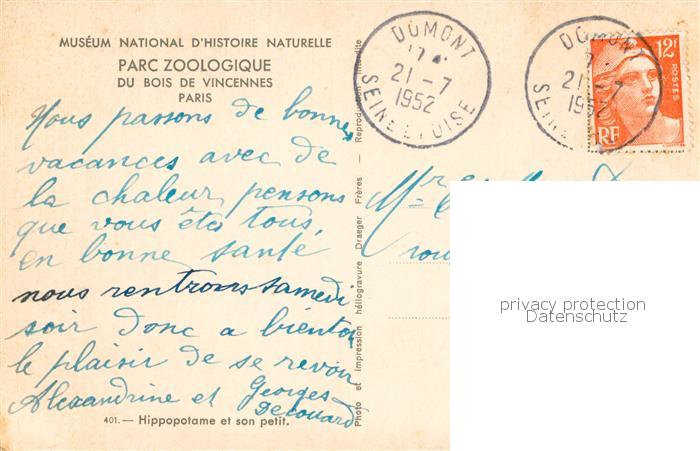 MUSÉUM NATIONAL D'HISTOIRE NATURELLE
PARC ZOOLOGIQUE
DU BOIS DE VINCENNES
PARIS
Nous passons de bonnes
vacances avec de
la chaleur pensons
que vous êtes tous,
en bonne santé
nous rentrons samedi
soir donc a bientot
le plaisir de se revoir
Alexandrine et Georges
401. — Hippopotame et son petit.
Photo et Impression héliogravure Draeger Frères — Reproduction interdite
DOMONT
21-7
1952
SEINE ET OISE
DOMONT
21-7
1952
SEINE
12F
POSTES
RF
Mr
privacy protection
Datenschutz